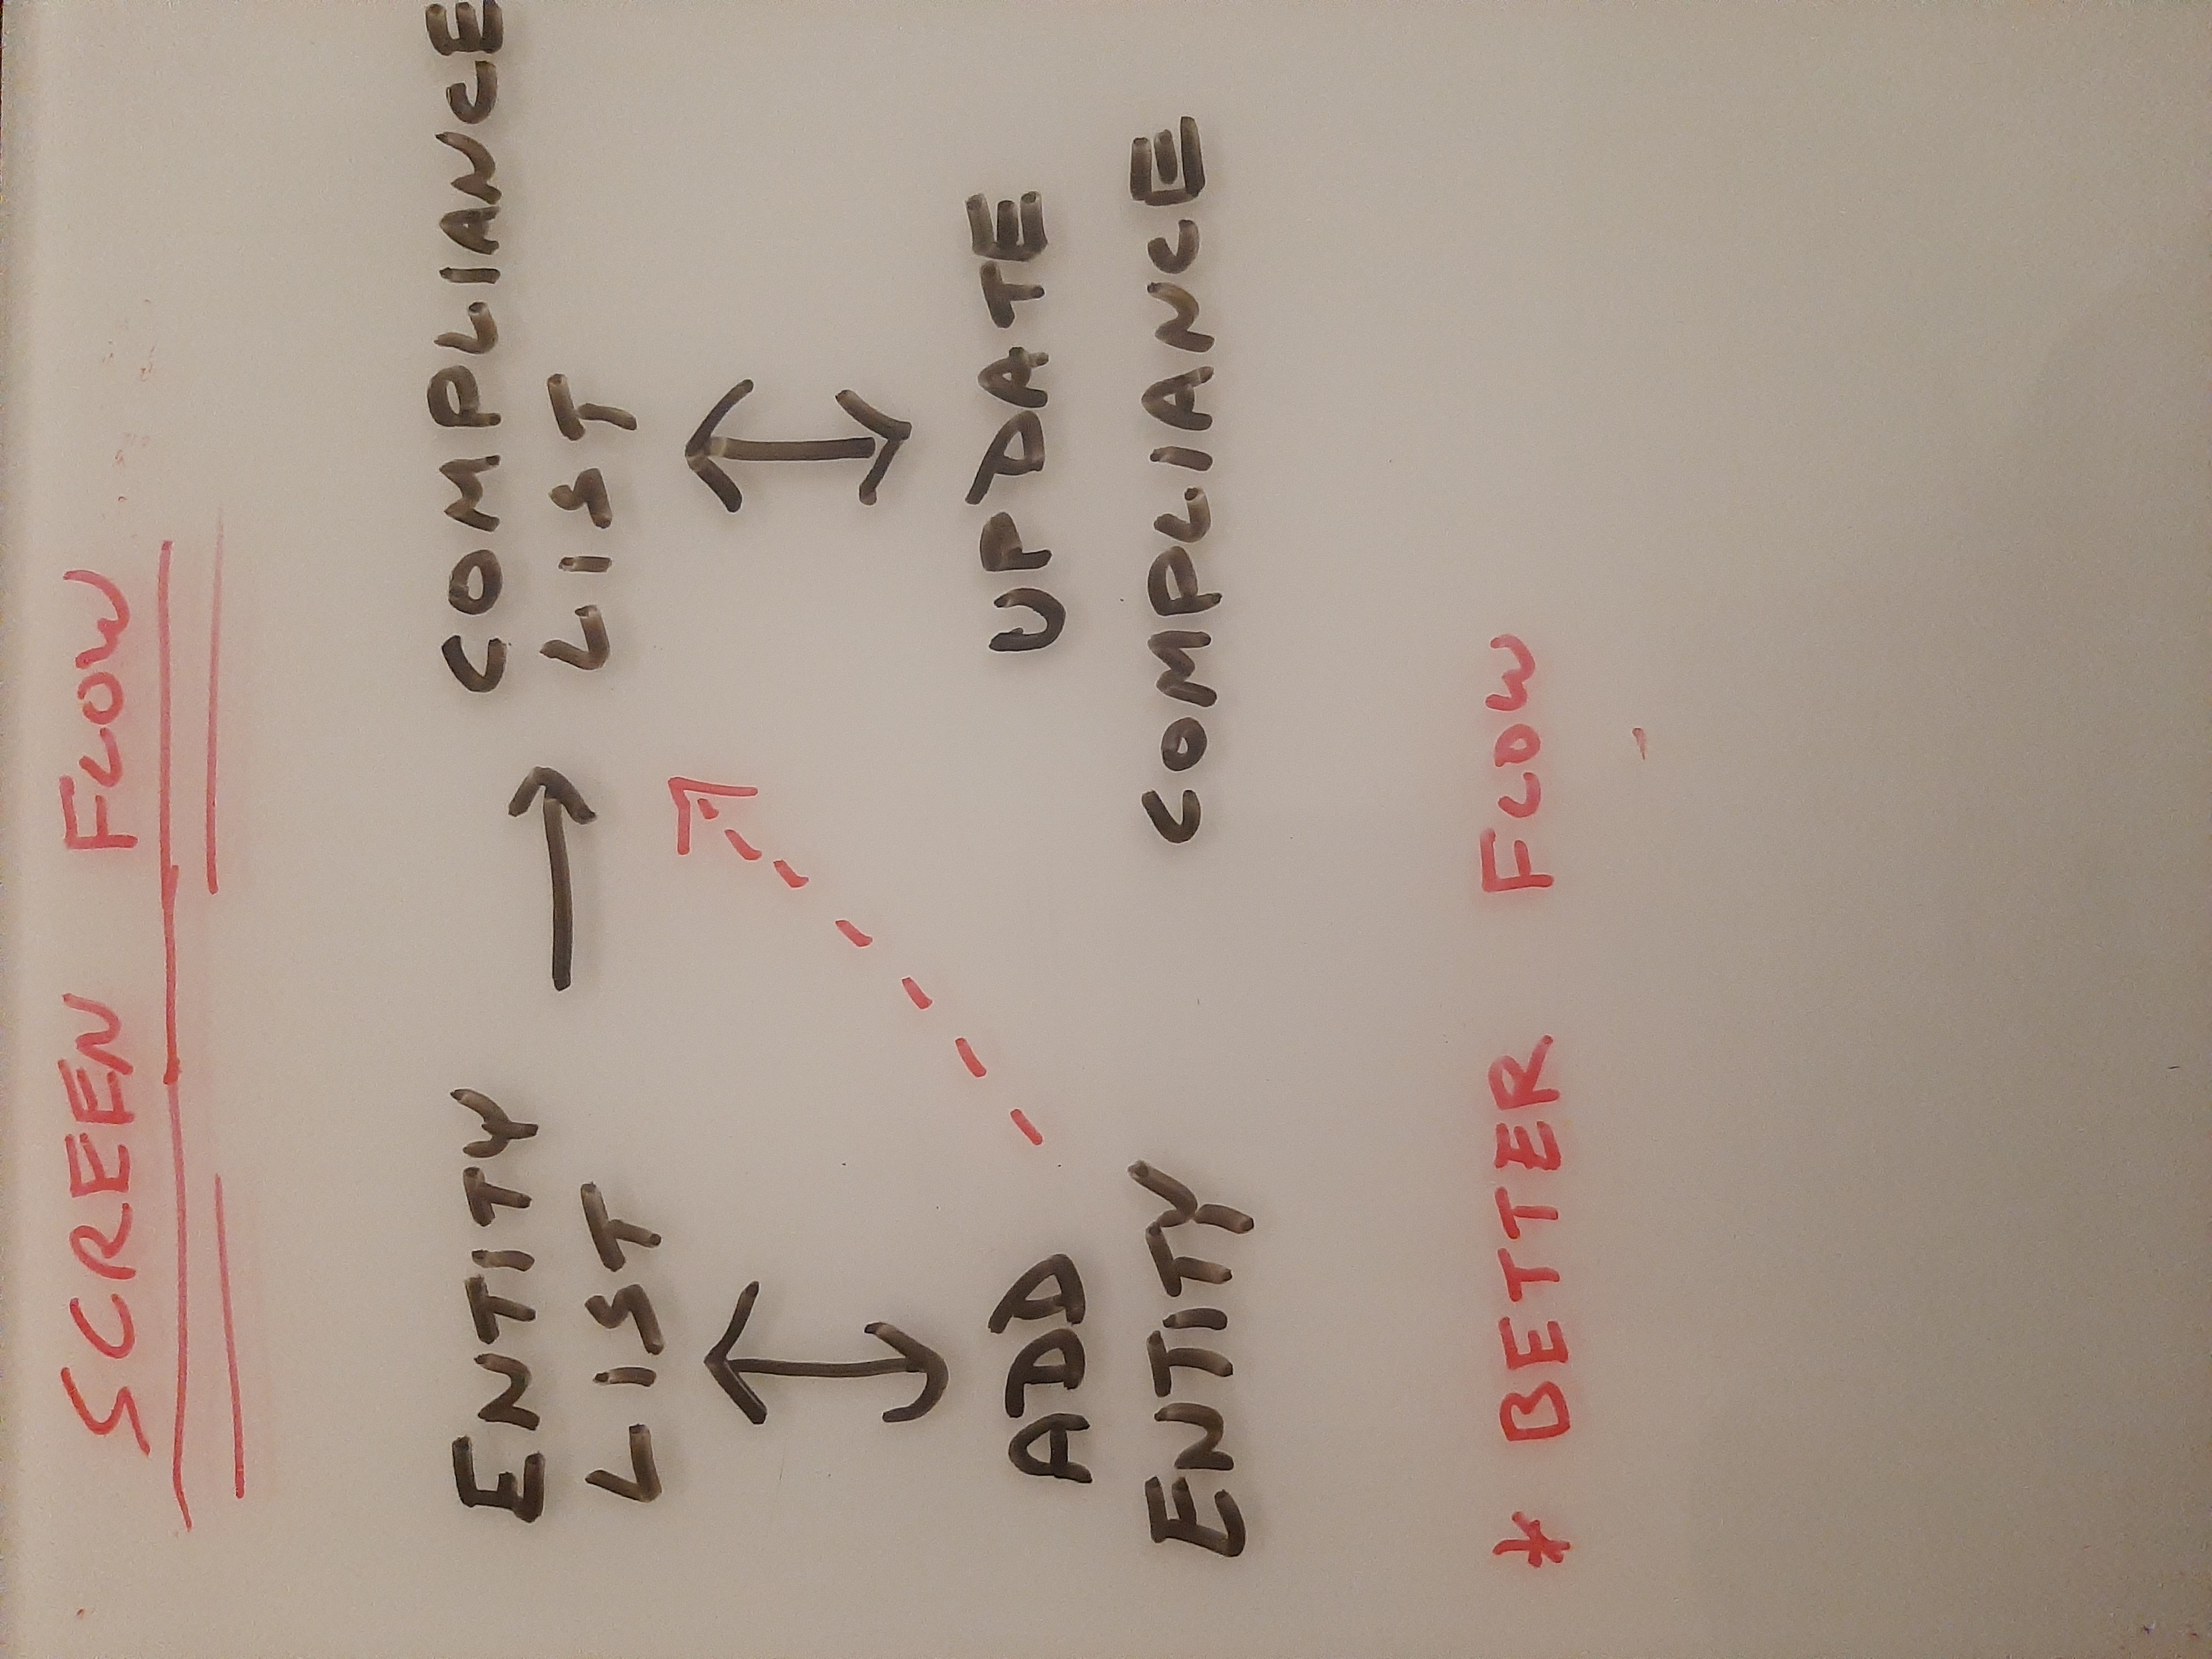 SCREEN FLOW
ENTITY
LIST
COMPLIANCE
LIST
ADD
ENTITY
UPDATE
COMPLIANCE
* BETTER FLOW